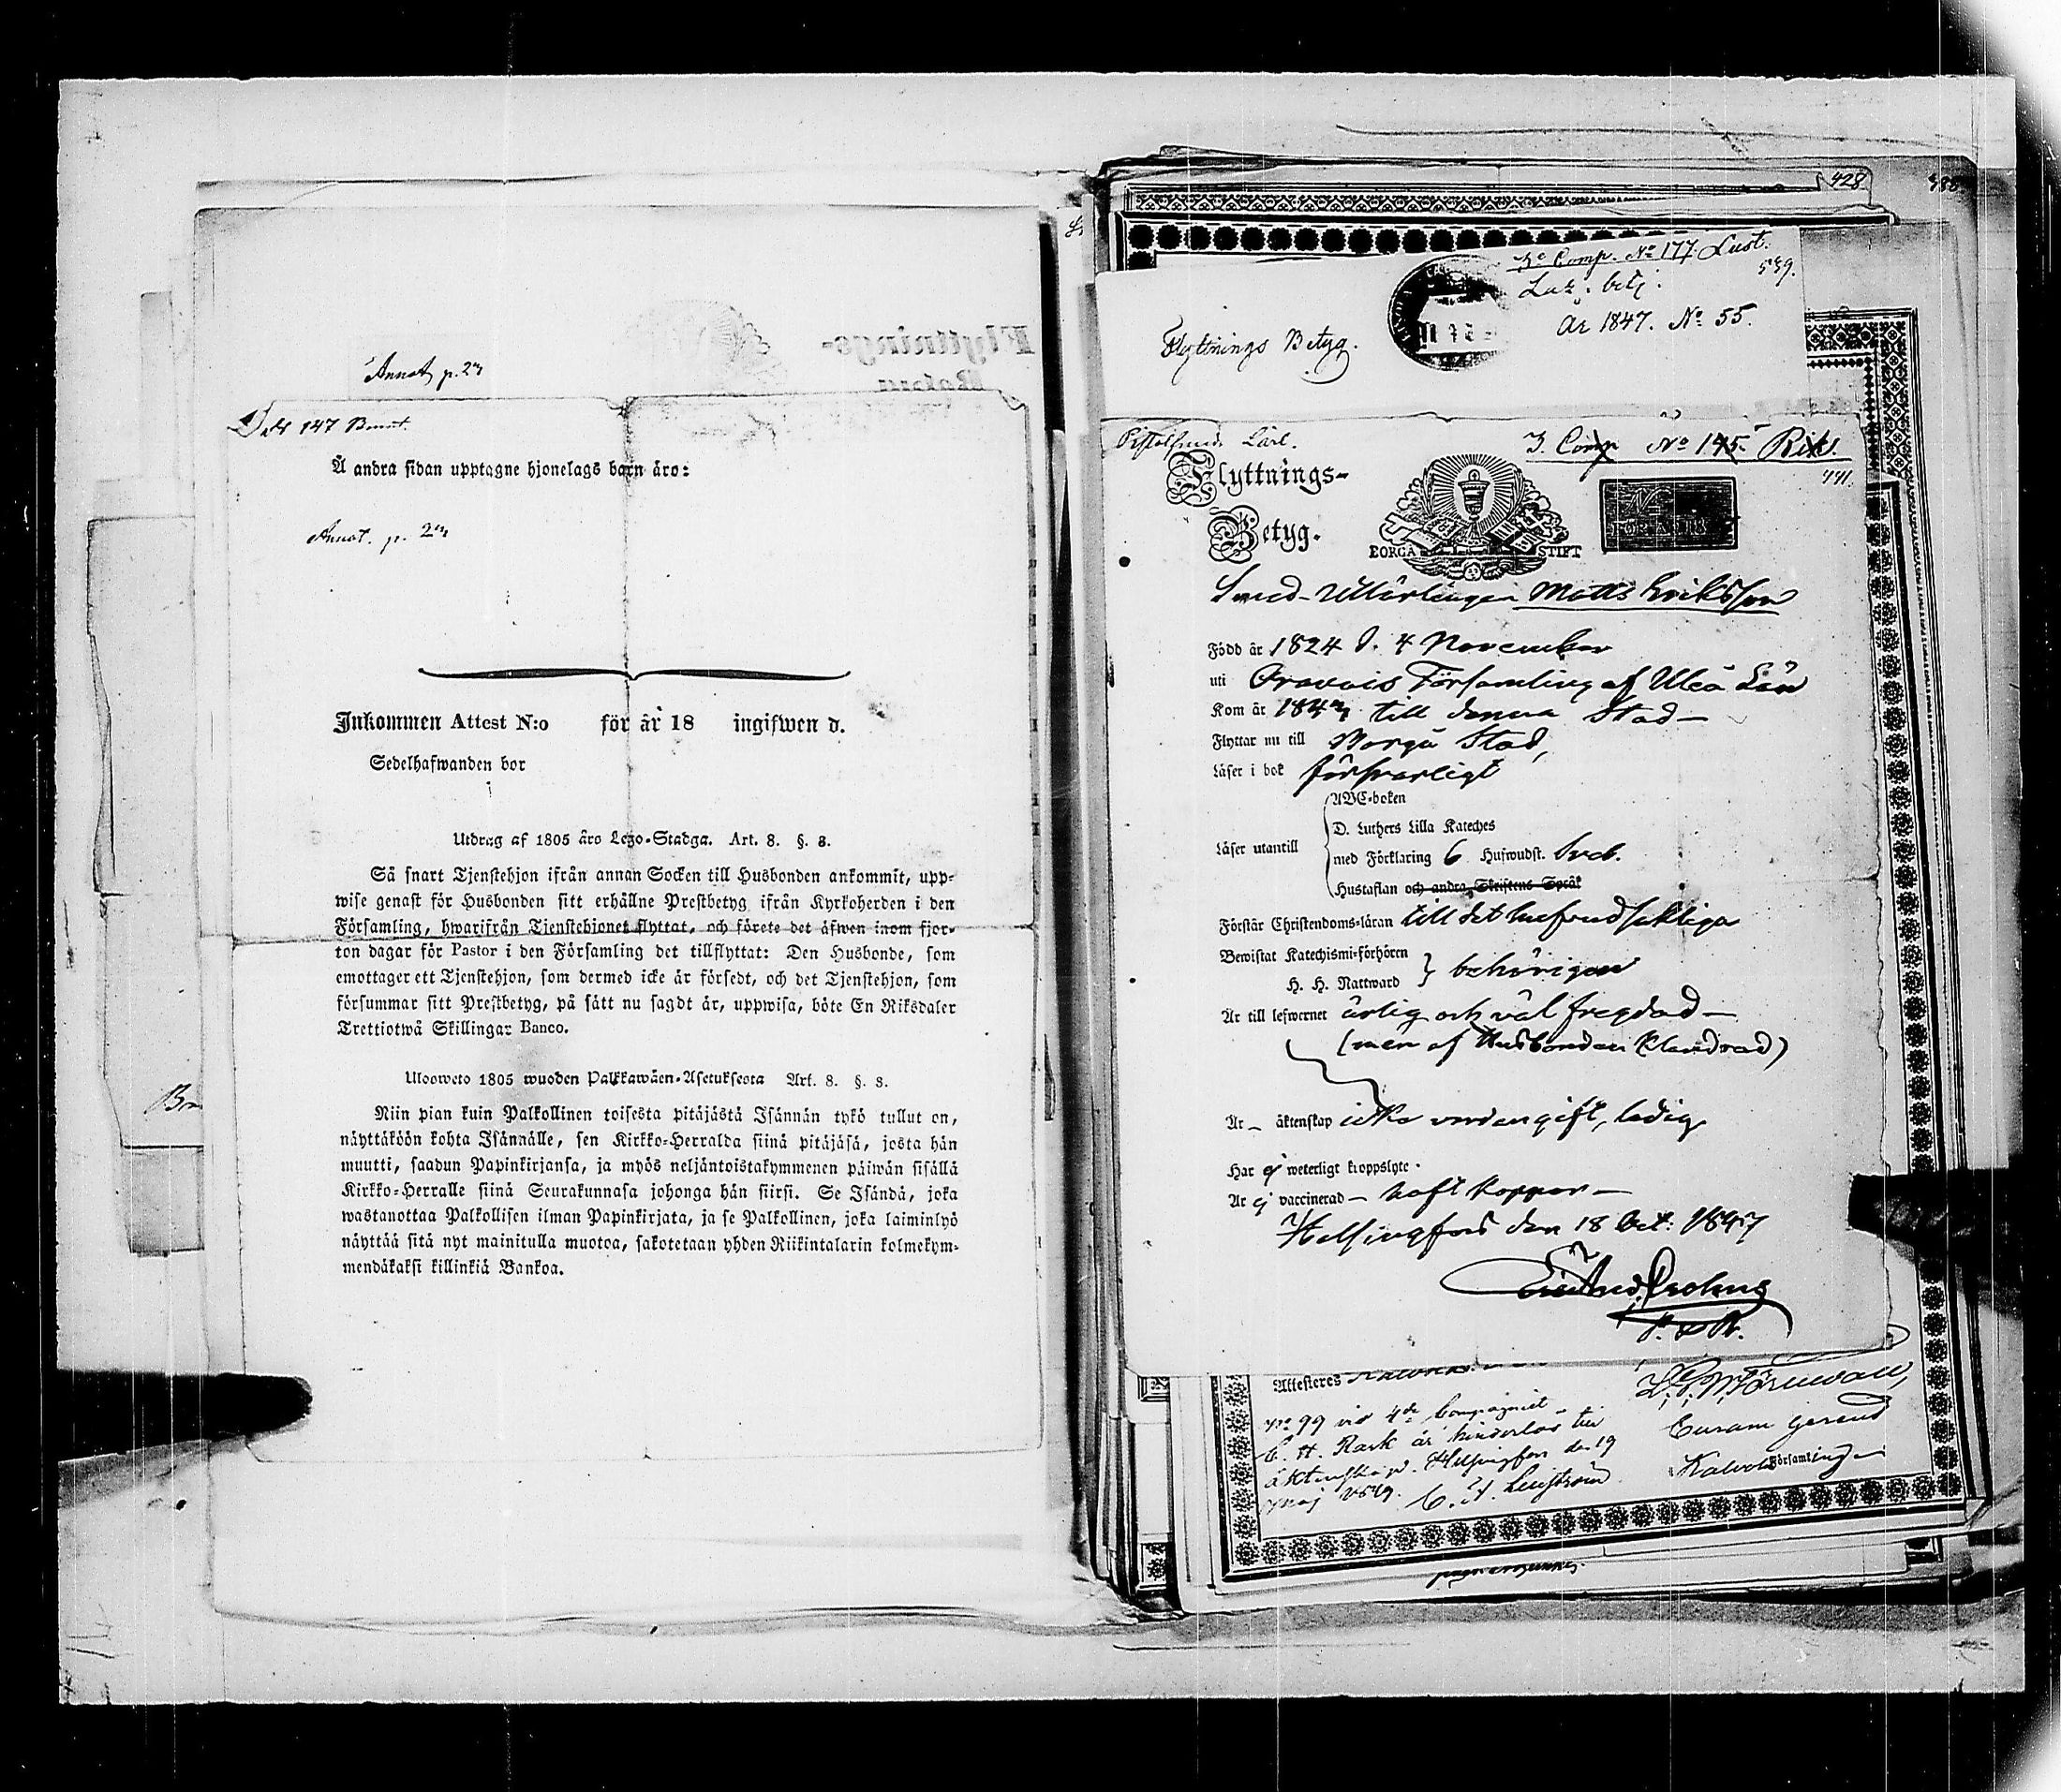 Annot p. 2
147
Å andra sidan upptagne hjonelags barn äro:
Annot. p. 2
Inkommen Attest N:o för år 18 ingifwen d.
Sedelhafwanden bor
Utdrag af 1805 års Lego-Stadga. Art. 8. §. 8.
Så snart Tjenstehjon ifrån annan Socken till Husbonden ankommit, upp-
wise genast för Husbonden sitt erhållne Prestbetyg ifrån Kyrkoherden i den
Församling, hwarifrån Tjenstehjonet flyttat, och förete det äfwen inom fjor-
ton dagar för Pastor i den Församling det tillflyttat: Den Husbonde, som
emottager ett Tjenstehjon, som dermed icke är försedt, och det Tjenstehjon, som
försummar sitt Prestbetyg, på sätt nu sagdt är, uppwisa, böte En Riksdaler
Trettiotwå Skillingar Banco.
Uloosweto 1805 wuoden Palkkawäen-Asetuksesta Art. 8. §. 8.
Niin pian kuin Palkollinen toisesta pitäjästä Isännän tykö tullut on,
näyttäköön kohta Isännälle, sen Kirkko-Herralda siinä pitäjäsä, josta hän
muutti, saadun Papinkirjansa, ja myös neljäntoistakymmenen päiwän sisällä
Kirkko-Herralle siinä Seurakunnasa johonga hän siirsi. Se Isändä, joka
wastanottaa Palkollisen ilman Papinkirjata, ja se Palkollinen, joka laiminlyö
näyttää sitä nyt mainitulla muotoa, sakotetaan yhden Riikintalarin kolmekym-
mendäkaksi killinkiä Bankoa.
428
3e Comp. No 177 Lust.
539.
År 1847. No 55.
Flyttnings Betyg.
3. Comp No 145. Rik.
441.
Flyttnings-
Betyg.
BORGÅ STIFT
Smed-Utlärlingen Matts Eriksson
Född år 1824 d. 4 November
uti Oravais Församling af Uleå Län
Kom år 1843 till denna Stad
Flyttar nu till Borgå Stad,
Läser i bok försvarligt
ABC-boken
D. Luthers Lilla Kateches
Läser utantill med Förklaring 6 Hufwudst. Sved.
Hustaflan och andra Skriftens Språk
Förstår Christendoms-läran till det hufvudsakliga
Bewistat Katechismi-förhören
H. H. Nattward } behörigen
Är till lefwernet ärlig och väl fregdad
(men af Husbonden klandrad)
Är äktenskap icke undergift, ledig
Har ej weterligt kroppslyte.
Är ej vaccinerad haft koppor
Helsingfors den 18 Oct: 1847
Attesteres
No 99 vid 4de Compagniet
C. H. Rask är hinderlös till
äktenskap. Helsingfors den 19
maj 1849.
Curam gerens
Församling